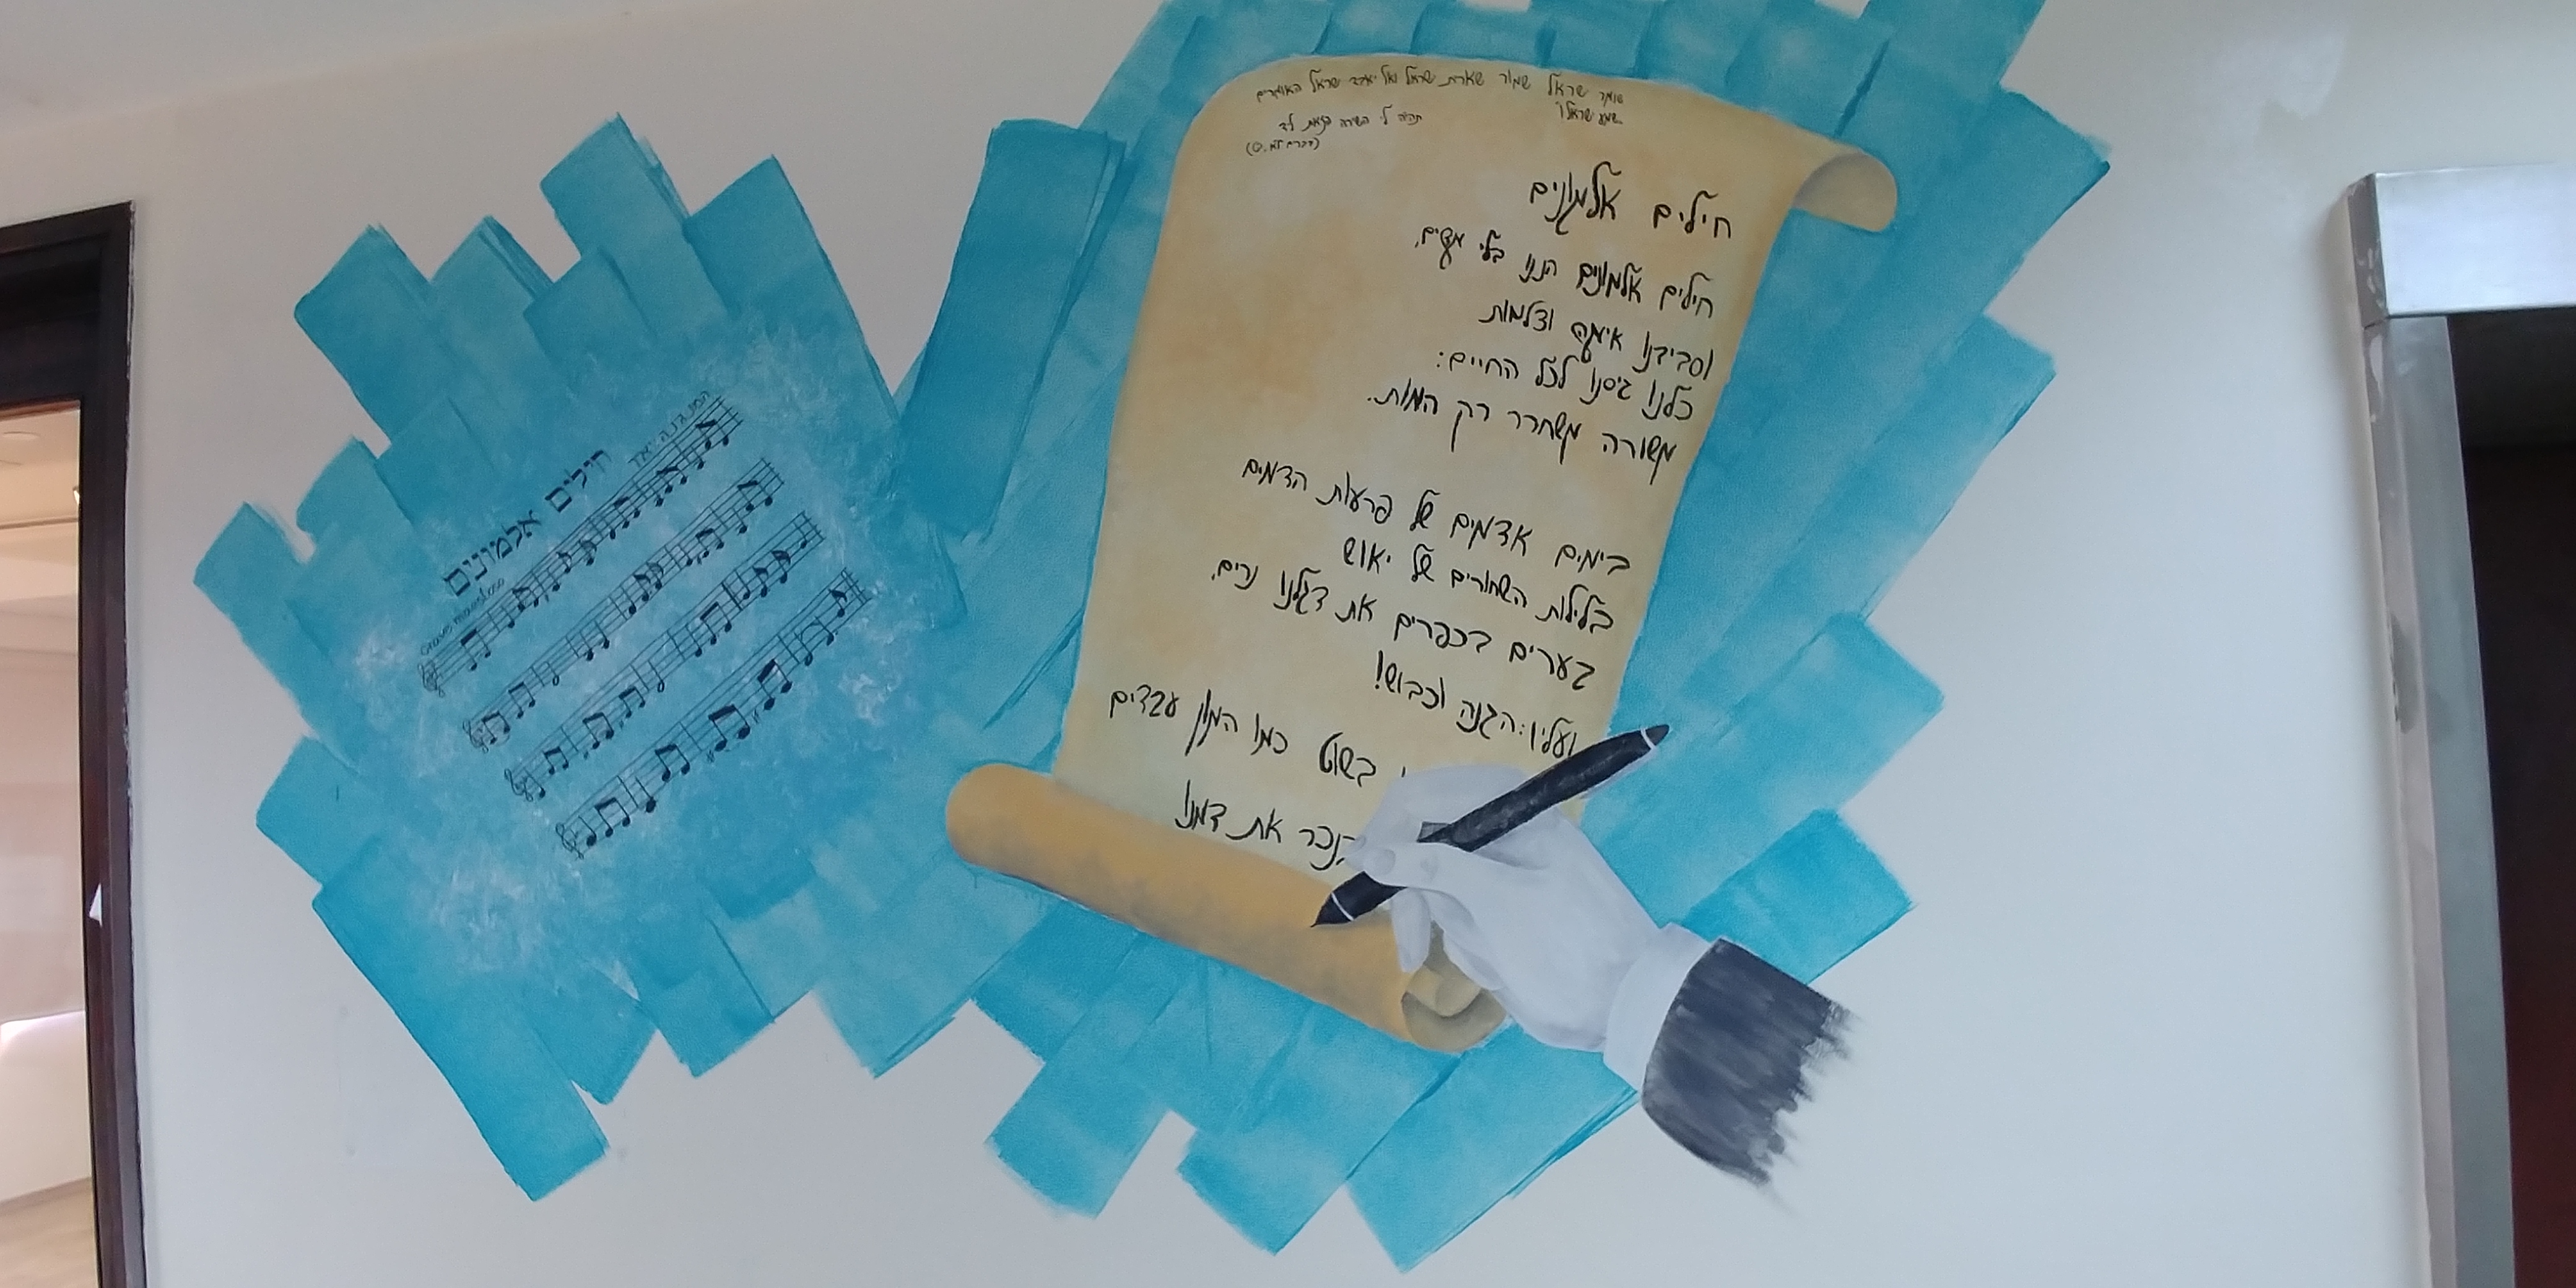 שומר שראל שמור שארית שראל ואל יאבד שראל האומרים
שמע שראל!
תהיה לי השירה הזאת לד
חילים אלמונים
חילים אלמונים הננו בלי מדים,
וסביבנו אימה וצלמות
כלנו גיסנו לכל החיים:
משורה משחרר רק המות.
בימים אדמים של פרעות הדמים
בלילות השחורים של יאוש
בערים בכפרים את דגלנו נרים,
ועליו: הגנה וכבוש!
בשוט כמו המון עבדים
לנכר את דמנו
חילים אלמונים
המנגינה: יאיר
Grave maestoso